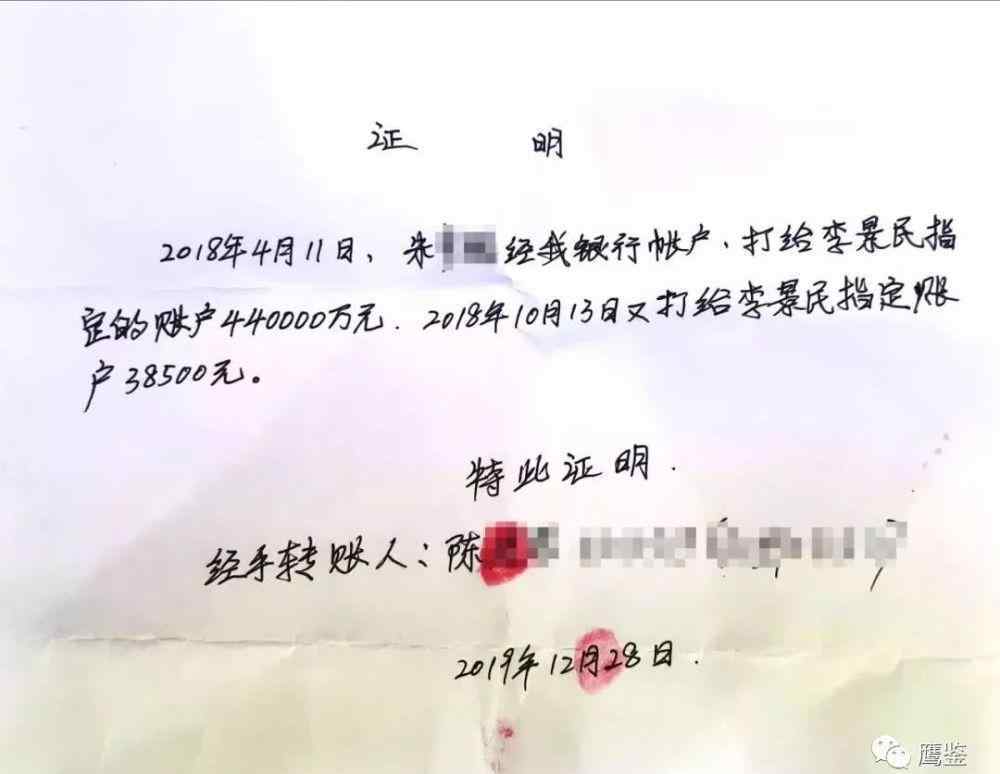 证 明
2018年4月11日、朱 经我银行帐户、打给李景民指
定的账户440000万元.2018年10月13日又打给李景民指定账
户38500元。
特此证明.
经手转账人:陈
2019年12月28日.
鹰鉴